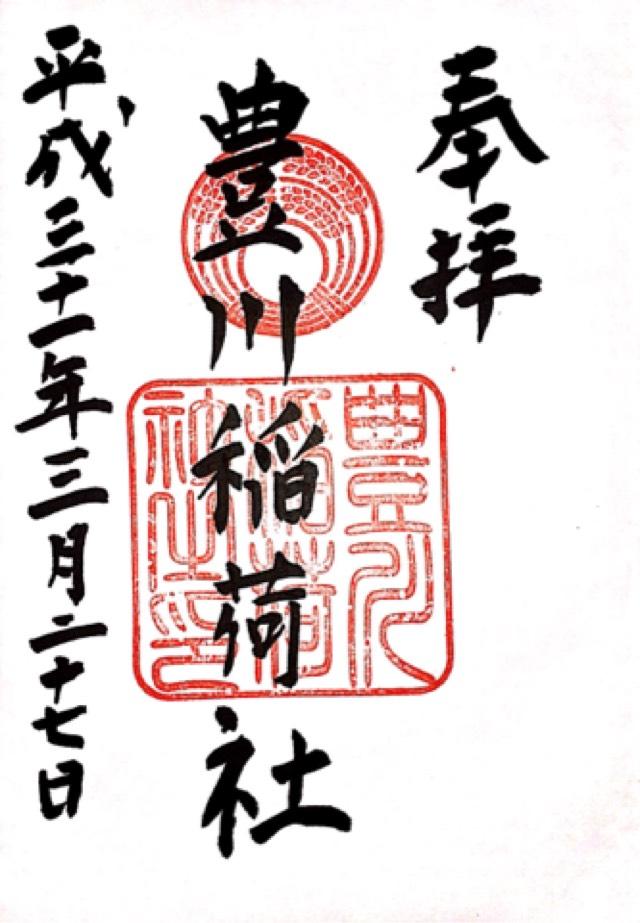 奉拝
豊川稲荷社
豊川
稲荷
社之印
平成三十一年三月二十七日